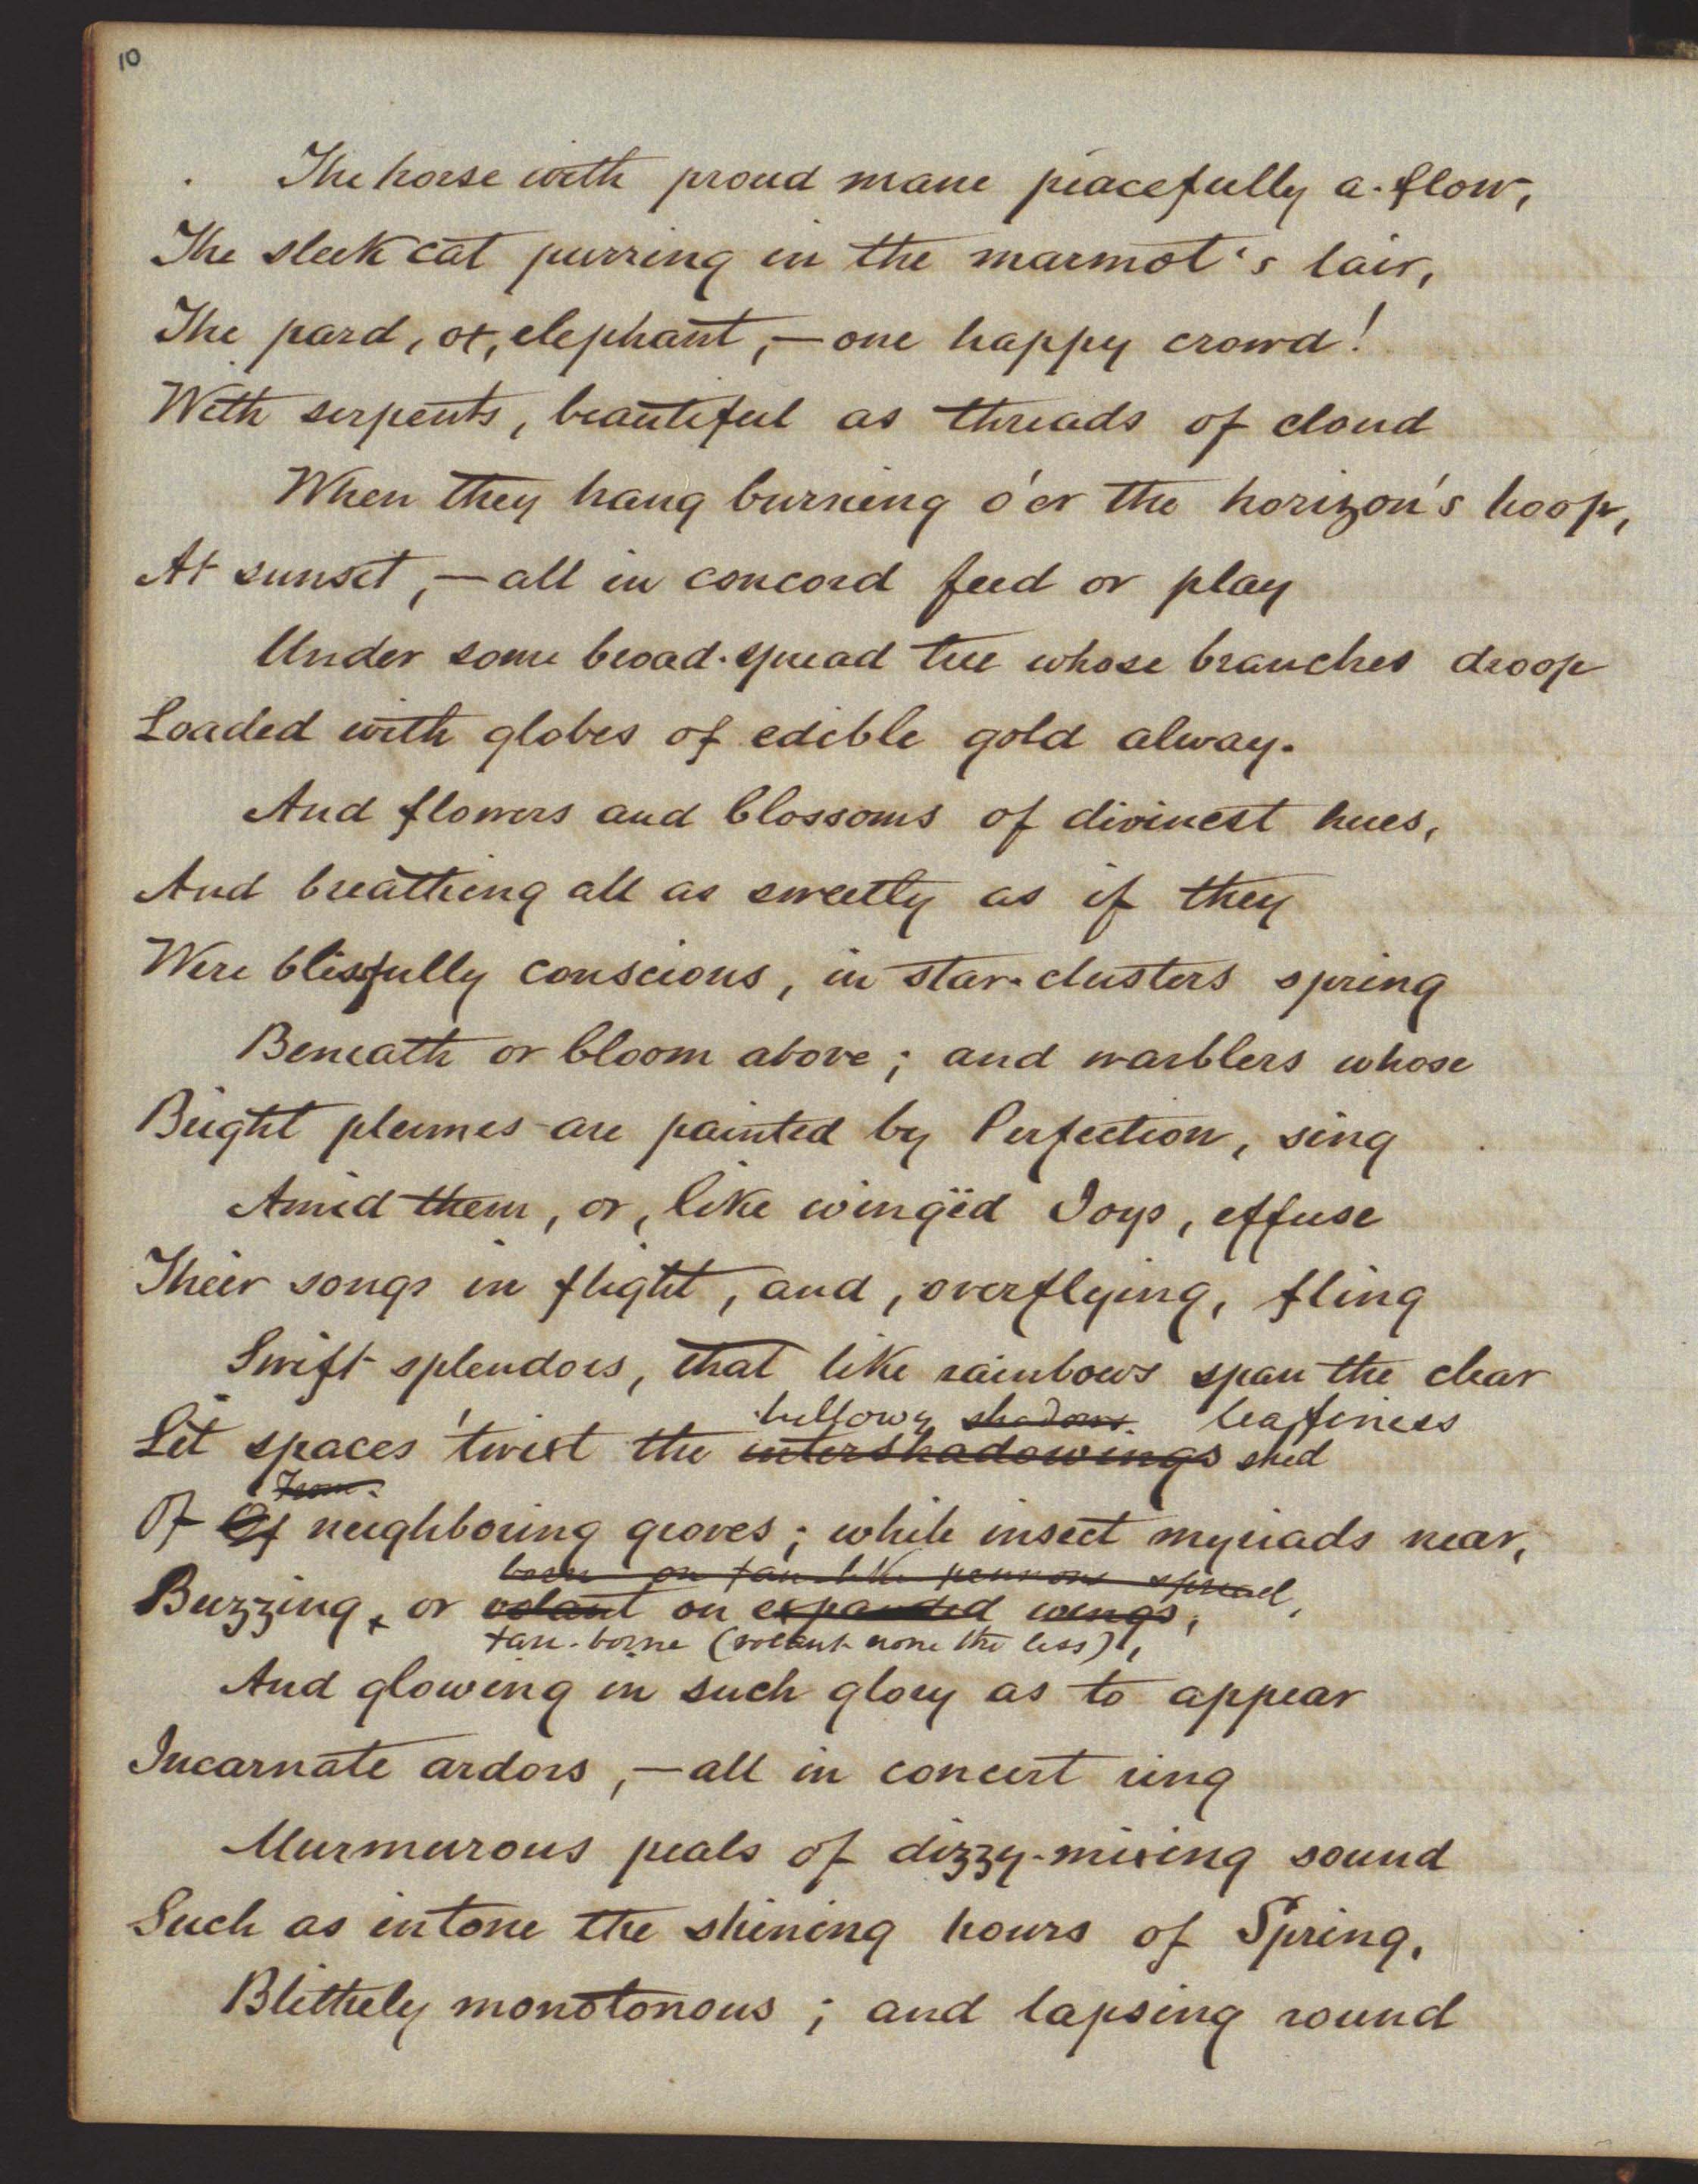 10
The horse with proud mane peacefully a-flow,
The sleek cat purring in the marmot's lair,
The pard, ox, elephant,—one happy crowd!
With serpents, beautiful as threads of cloud
When they hang burning o'er the horizon's hoop,
At sunset,—all in concord feed or play
Under some broad-spread tree whose branches droop
Loaded with globes of edible gold alway.
And flowers and blossoms of divinest hues,
And breathing all as sweetly as if they
Were blissfully conscious, in star-clusters spring
Beneath or bloom above; and warblers whose
Bright plumes are painted by Perfection, sing
Amid them, or, like wingëd Joys, effuse
Their songs in flight, and, overflying, fling
Swift splendors, that like rainbows span the clear
billowy shadows leafiness
Lit spaces 'twixt the intershadowings shed
From
Of Of neighboring groves; while insect myriads near,
born on fan-like pennons spread,
Buzzing, or volant on expanded wings,
fan-borne (volant none the less),
And glowing in such glory as to appear
Incarnate ardors,—all in concert ring
Murmurous peals of dizzy-mixing sound
Such as intone the shining hours of Spring,
Blithely monotonous; and lapsing round